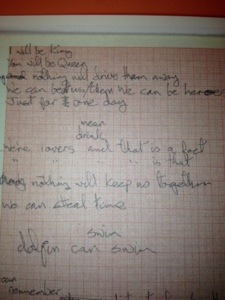 I will be king
You will be Queen
nothing will drive them away
We can be them We can be heroes
Just for one day
mean
drink
lovers and that is a fact
is that
nothing will keep us together
We can steal time
swim
dolfin can swim
remember